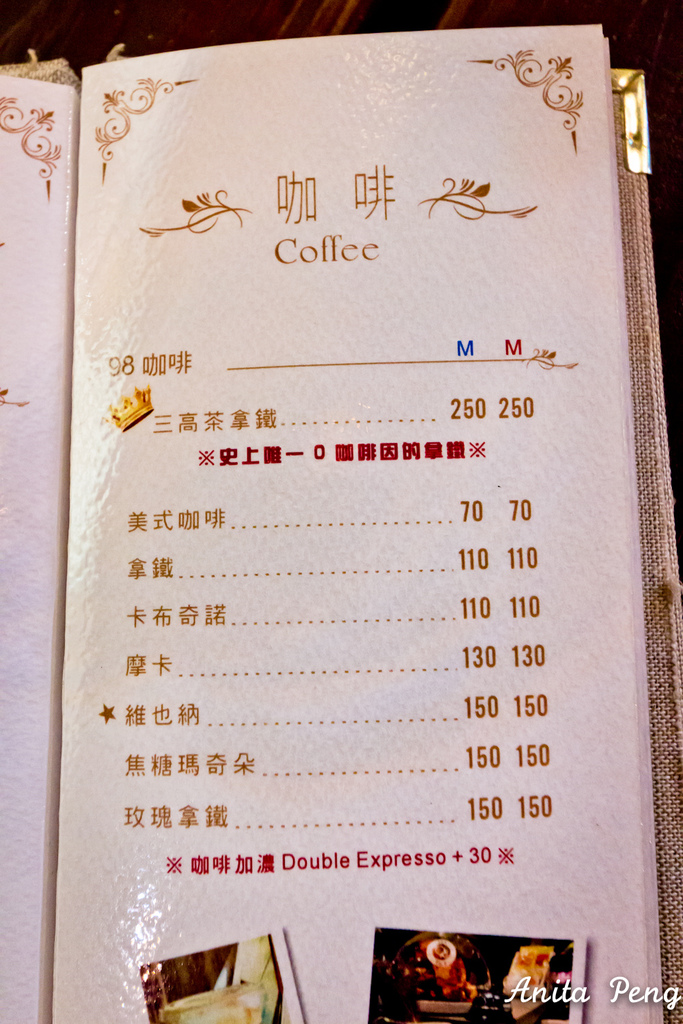 咖啡
Coffee
98 咖啡 M M
三高茶拿鐵 250 250
※史上唯一 0 咖啡因的拿鐵※
美式咖啡 70 70
拿鐵 110 110
卡布奇諾 110 110
摩卡 130 130
★維也納 150 150
焦糖瑪奇朵 150 150
玫瑰拿鐵 150 150
※ 咖啡加濃 Double Expresso + 30 ※
Anita Peng